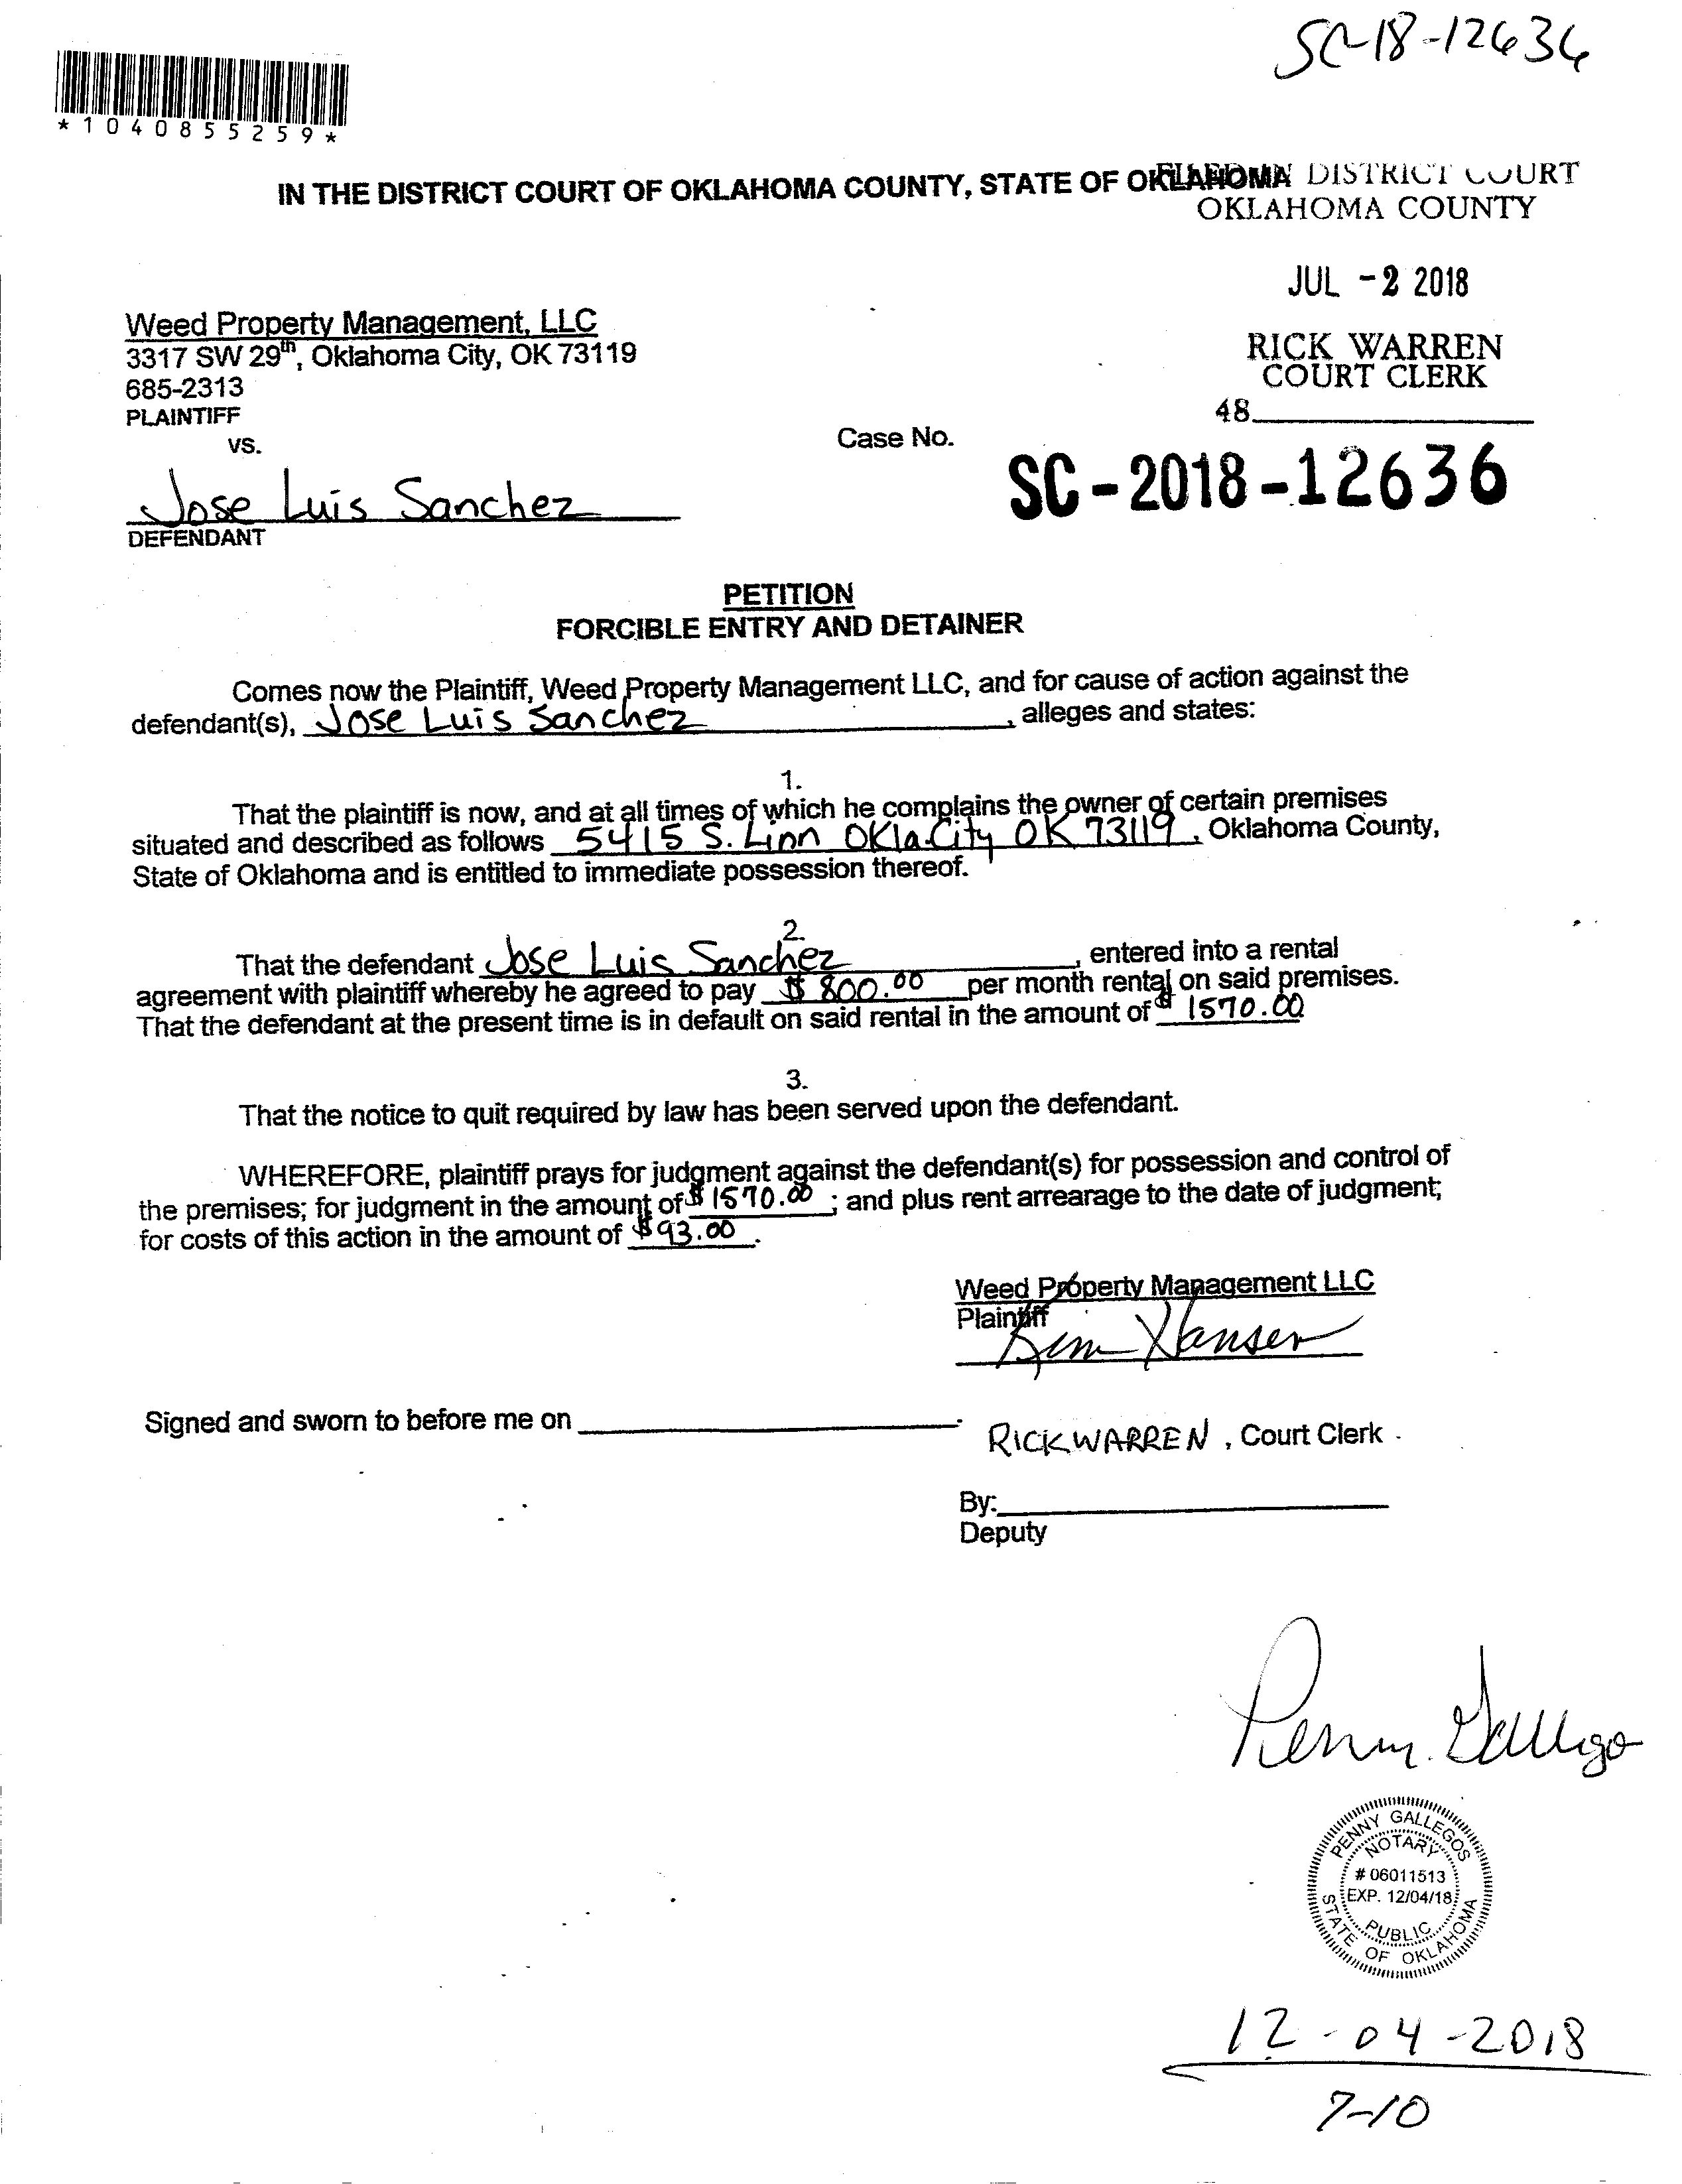 SC-18-12636
*1040855259*
IN THE DISTRICT COURT OF OKLAHOMA COUNTY, STATE OF OKLAHOMA
FILED IN DISTRICT COURT
OKLAHOMA COUNTY
JUL -2 2018
Weed Property Management, LLC
3317 SW 29th, Oklahoma City, OK 73119
685-2313
PLAINTIFF
RICK WARREN
COURT CLERK
48
vs.
Case No.
SC-2018-12636
Jose Luis Sanchez
DEFENDANT
PETITION
FORCIBLE ENTRY AND DETAINER
Comes now the Plaintiff, Weed Property Management LLC, and for cause of action against the
defendant(s), Jose Luis Sanchez, alleges and states:
1.
That the plaintiff is now, and at all times of which he complains the owner of certain premises
situated and described as follows 5415 S. Linn Okla.City OK 73119, Oklahoma County,
State of Oklahoma and is entitled to immediate possession thereof.
2.
That the defendant Jose Luis Sanchez, entered into a rental
agreement with plaintiff whereby he agreed to pay $ 800.00 per month rental on said premises.
That the defendant at the present time is in default on said rental in the amount of $ 1570.00
3.
That the notice to quit required by law has been served upon the defendant.
WHEREFORE, plaintiff prays for judgment against the defendant(s) for possession and control of
the premises; for judgment in the amount of $ 1570.00; and plus rent arrearage to the date of judgment;
for costs of this action in the amount of $93.00.
Weed Property Management LLC
Plaintiff
Kim Hansen
Signed and sworn to before me on
RICK WARREN, Court Clerk
By:
Deputy
Penny Gallegos
PENNY GALLEGOS
NOTARY
# 06011513
EXP. 12/04/18
PUBLIC
STATE OF OKLAHOMA
12-04-2018
7-10